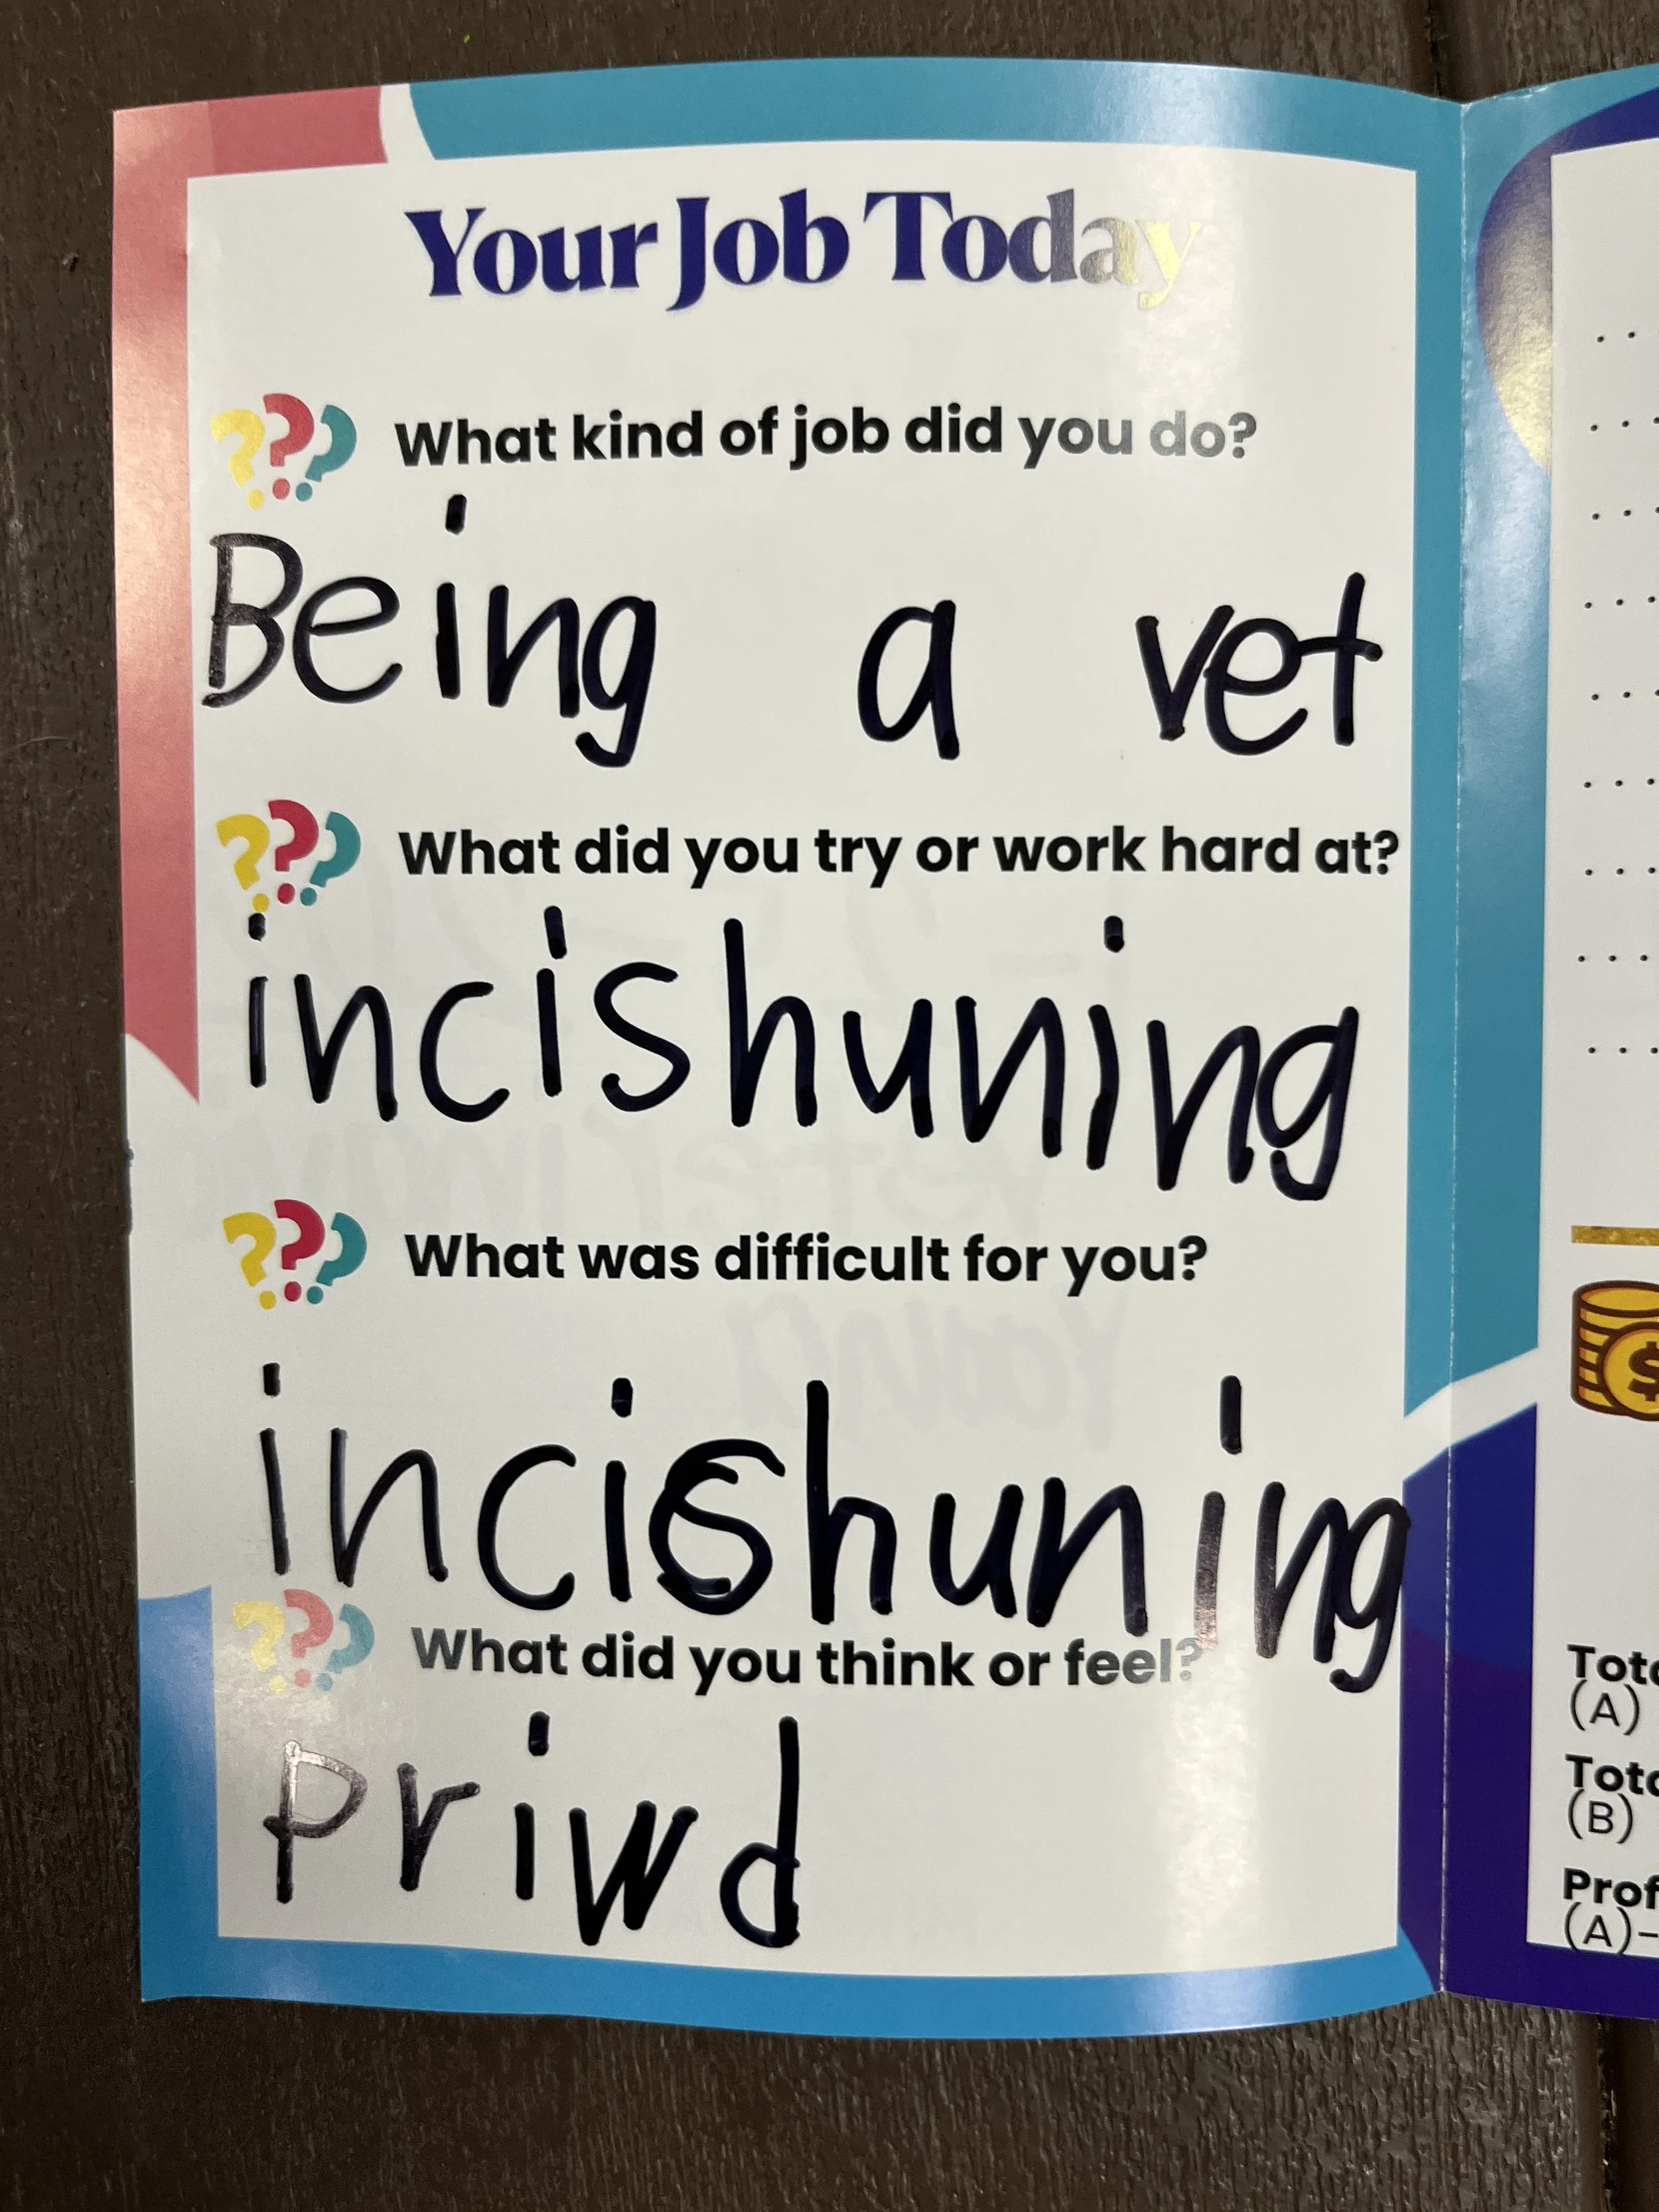 Your Job Today
What kind of job did you do?
Being a vet
What did you try or work hard at?
incishuning
What was difficult for you?
incishuning
What did you think or feel?
Priwd
$
(A)
(B)
(A)-